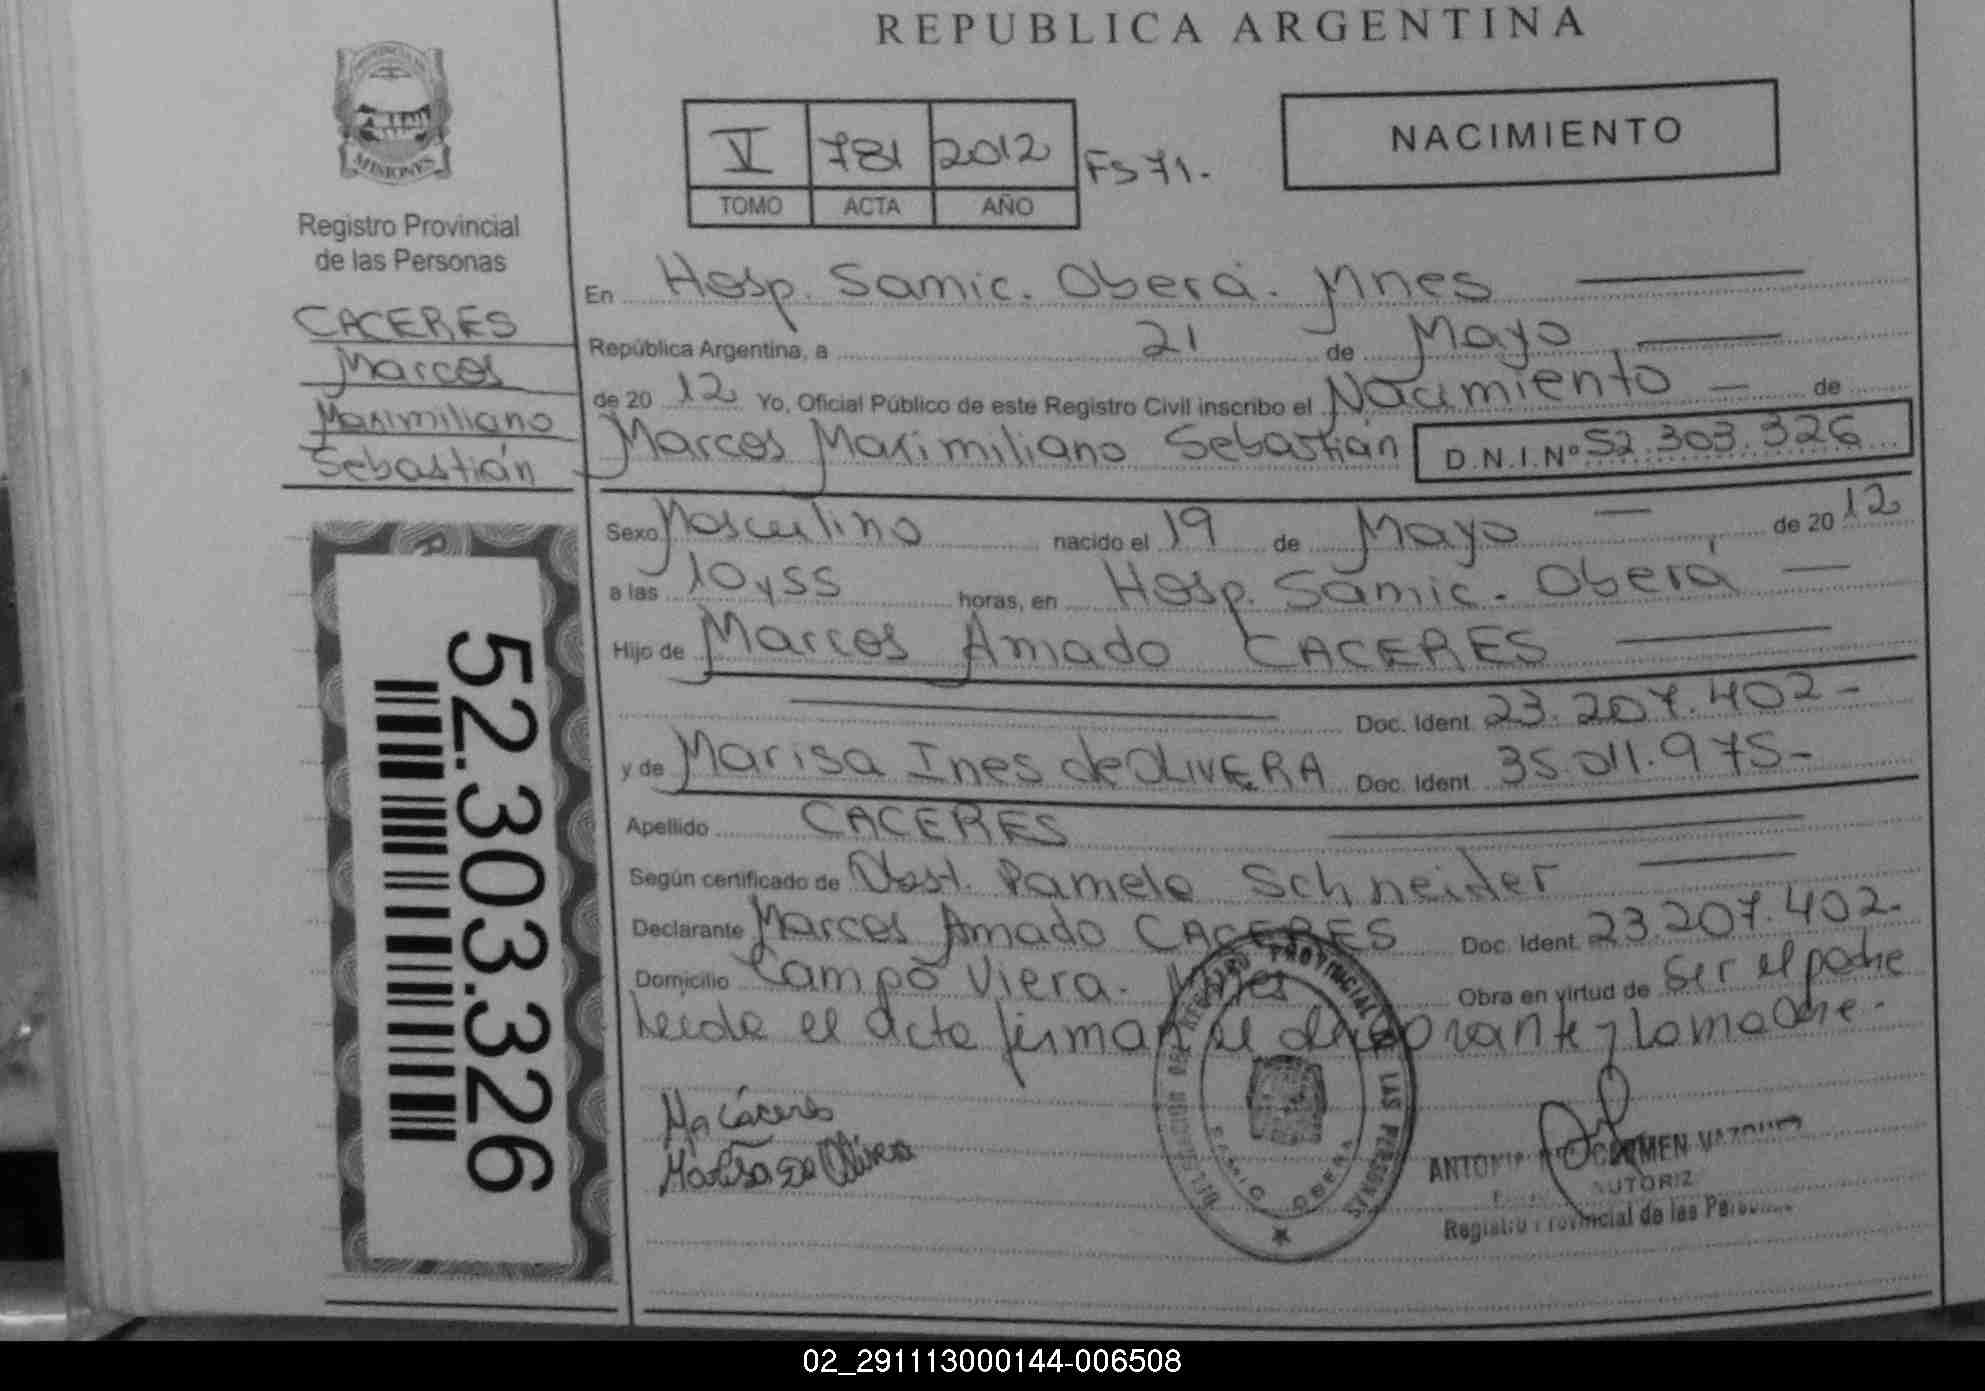 REPUBLICA ARGENTINA
MISIONES
Registro Provincial
de las Personas
CACERES
Marcos
Maximiliano
Sebastián
52.303.326
V 781 2012 Fs 71.
TOMO ACTA AÑO
NACIMIENTO
En Hosp. Samic. Oberá. Mnes
República Argentina, a 21 de Mayo
de 20 12 Yo, Oficial Público de este Registro Civil inscribo el Nacimiento de
Marcos Maximiliano Sebastián D.N.I.Nº 52.303.326
Sexo Masculino nacido el 19 de Mayo de 20 12
a las 10 y 55 horas, en Hosp. Samic. Oberá
Hijo de Marcos Amado CACERES
Doc. Ident. 23.207.402-
y de Marisa Ines de OLIVERA Doc. Ident. 35.011.975-
Apellido CACERES
Según certificado de Obst. Pamela Schneider
Declarante Marcos Amado CACERES Doc. Ident. 23.207.402-
Domicilio Campo Viera. Mnes Obra en virtud de ser el padre
Leida el acta firman el declarante y la madre-
Ma Cáceres
Marisa De Olivera
REGISTRO PROVINCIAL DE LAS PERSONAS
SAMIC OBERA
CARMEN
AUTORIZ
Registro Provincial de las Personas
02_291113000144-006508